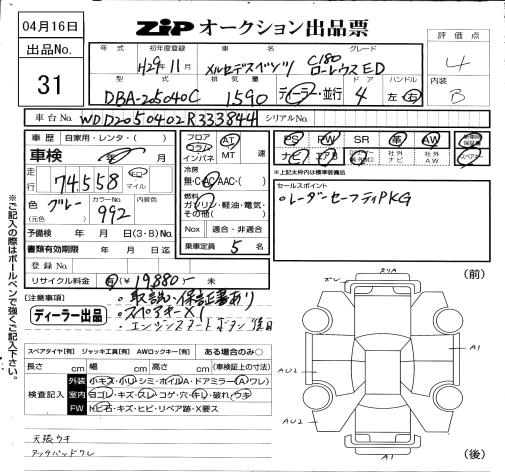 04月16日
ZiP オークション出品票
出品No.
31
年式 初年度登録 車名 グレード
H29年11月 メルセデスベンツ C180 ローレウスED
型式 排気量 ドア ハンドル
DBA-205040C 1590 ディーラー・並行 4 左・右
評価点
4
内装
B
車台No. WDD2050402R333844 シリアルNo.
車歴 自家用・レンタ・( )
車検 年 月
走行 74,558 km マイル
色 グレー カラーNo. 992 内装色
(元色)
予備検 年 月 日(3・8)No.
書類有効期限 年 月 日迄
登録No.
リサイクル料金 有(¥19,880)- 未
フロア コラム インパネ
AT MT 速
冷房
無・C・AC・AAC・( )
燃料
ガソリン・軽油・電気・その他( )
Nox 適合・非適合
乗車定員 5 名
PS PW SR 革 AW 新車時保証書
ナビ エアB 社外ナビ 社外AW スペアキー
*上記太枠内は標準装備品
セールスポイント
○レーダーセーフティPKG
(注意事項)
ディーラー出品
・取説・保証書あり
・スペアキー×1
・エンジンスタートボタン
※ご記入の際はボールペンで強くご記入下さい。
スペアタイヤ[有] ジャッキ工具[有] AWロックキー[有] ある場合のみ○
長さ cm 幅 cm 高さ cm (車検証上の寸法)
検査記入
外装 小キズ・小U・シミ・ホイルA・ドアミラー(A・ワレ)
室内 ヨゴレ・キズ・スレ・コゲ・穴・キレ・破れ・ウキ
FW トビ石・キズ・ヒビ・リペア跡・X要ス
天張ウキ
タッチパッドワレ
(前)
スリA
スレ
A1
AU2
AU2
A1
(後)